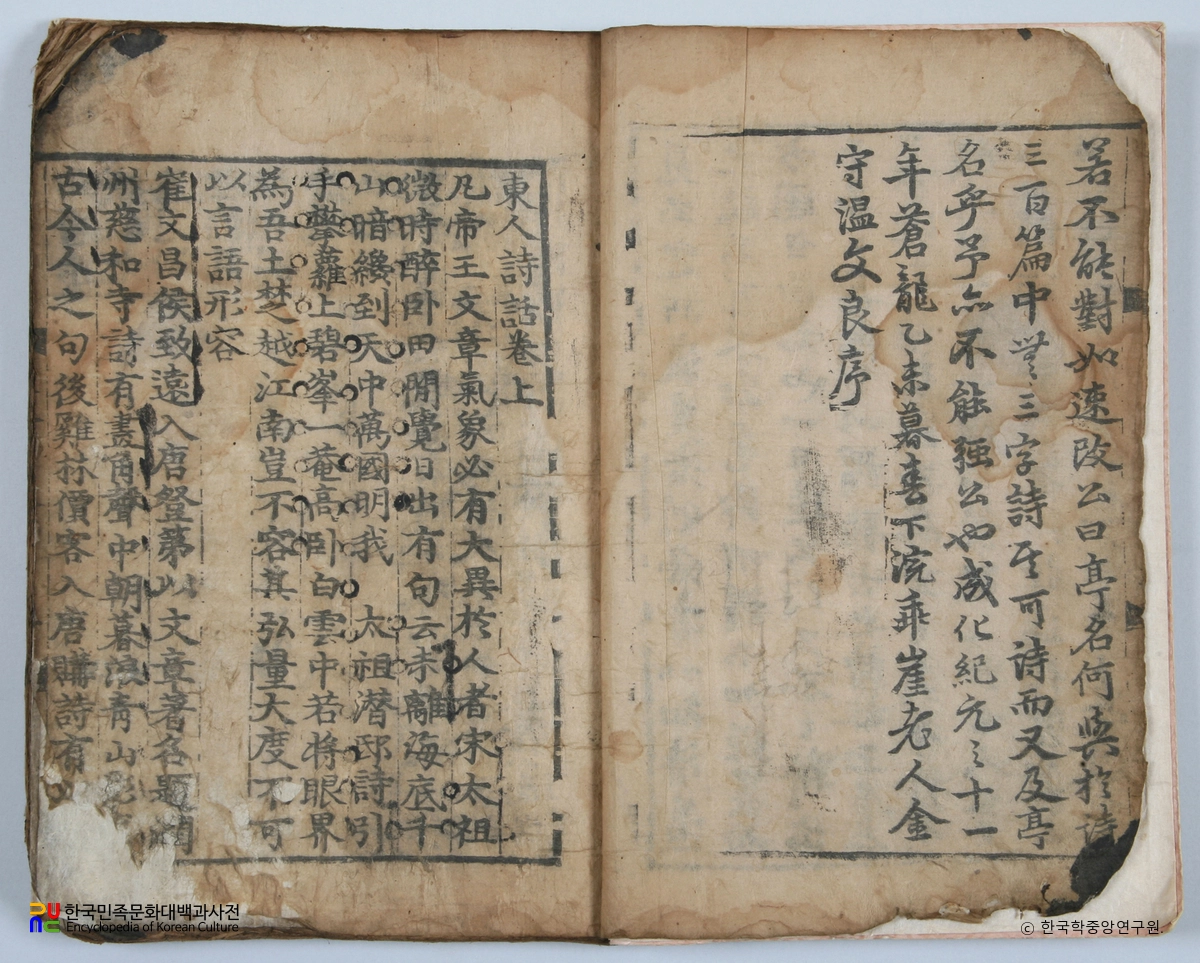 若不能對如速改公曰亭名何與於詩
三百篇中無三字詩其可詩而又及亭
名乎予亦不能强公也成化紀元之十一
年蒼龍乙未暮春下浣乖崖老人金
守温文良序
東人詩話卷上
凡帝王文章氣象必有大異於人者宋太祖
微時醉卧田間覺日出有句云未離海底千
山暗纔到天中萬國明我 太祖潜邸詩引
手攀蘿上碧峯一菴高卧白雲中若將眼界
為吾土楚越江南豈不容其弘量大度不可
以言語形容
崔文昌侯致遠入唐登第以文章著名題潤
州慈和寺詩有畫角聲中朝暮浪青山影
古今人之句後雞林賈客入唐購詩有
한국민족문화대백과사전
Encyclopedia of Korean Culture
ⓒ 한국학중앙연구원.